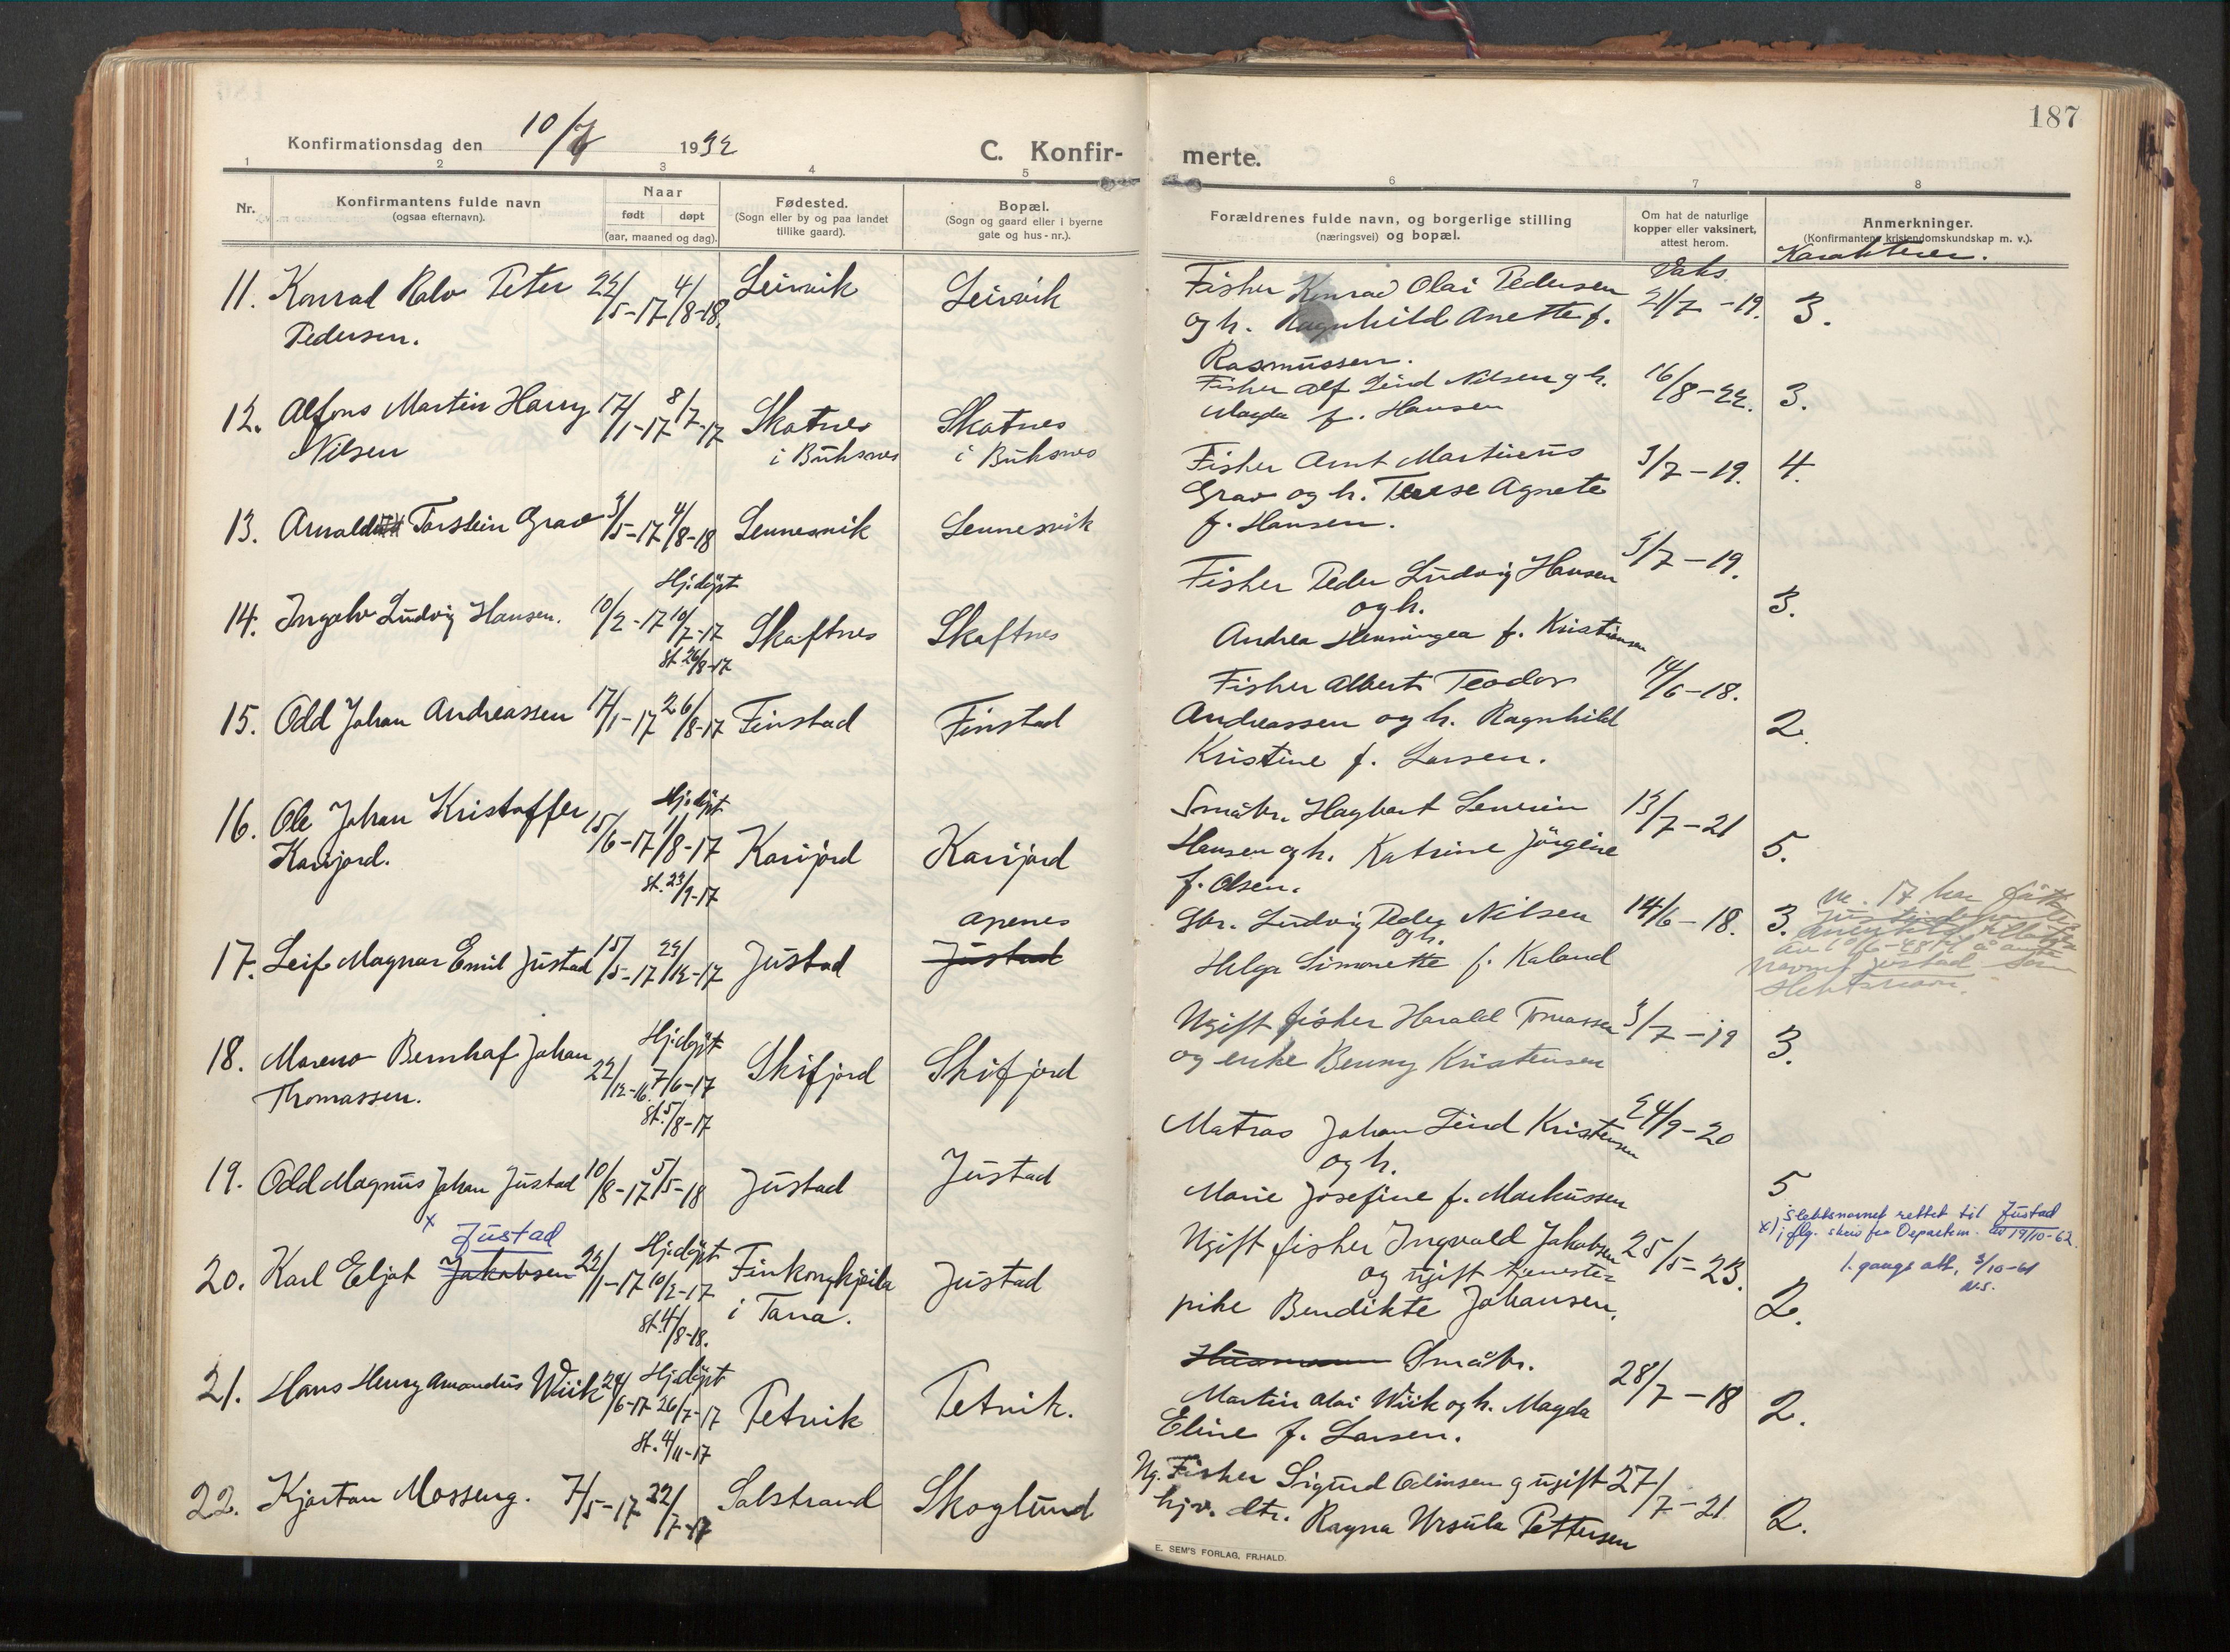 187
Konfirmationsdag den 10/7 1932
C. Konfir- merte.
1 2 3 4 5 6 7 8
Nr.
Konfirmantens fulde navn
(ogsaa efternavn).
Naar
født døpt
(aar, maaned og dag).
Fødested.
(Sogn eller by og paa landet
tillike gaard).
Bopæl.
(Sogn og gaard eller i byerne
gate og hus-nr.).
Forældrenes fulde navn, og borgerlige stilling
(næringsvei) og bopæl.
Om hat de naturlige
kopper eller vaksinert,
attest herom.
Anmerkninger.
(Konfirmantens kristendomskundskap m. v.).
Karakterer.
11. Konrad Rolv Peter 22/5-17 4/8-18. Leirvik Leirvik
Pedersen.
Fisker Konrad Olai Pedersen Vaks. 21/7-19. 3.
og h. Ragnhild Anette f.
Rasmussen.
12. Alfons Martin Harry 17/1-17 8/7-17 Skotnes Skotnes
Nilsen i Buksnes i Buksnes
Fisker Alf Lind Nilsen og h. 16/8-22. 3.
Magda f. Hansen
13. Arnold Torstein Grav 3/5-17 4/8-18 Sennesvik Sennesvik
Fisker Arnt Martinus 3/7-19. 4.
Grav og h. Terese Agnete
f. Hansen.
14. Ingolv Ludvig Hansen. 10/2-17 Hj.døpt 10/7-17 st. 26/8-17 Skaftnes Skaftnes
Fisker Peder Ludvig Hansen 5/7-19. 3.
og h.
Andrea Henningea f. Kristiansen
15. Odd Johan Andreassen 17/1-17 26/8-17 Finstad Finstad
Fisker Albert Teodor 14/6-18. 2.
Andreassen og h. Ragnhild
Kristine f. Larsen.
16. Ole Johan Kristoffer 15/6-17 Hj.døpt 1/8-17 st. 23/9-17 Karijord Karijord
Karijord.
Småbr. Hagbart Severin 13/7-21 5.
Hansen og h. Katrine Jörgine
f. Olsen.
17. Leif Magnar Emil Justad 15/5-17 29/12-17 Justad Apenes
Justad
Gbr. Ludvig Peder Nilsen 14/6-18. 3.
og h.
Helga Simonette f. Kaland
Nr. 17 har fått
av 10/6-48 til å anta
navnet Justad som
slektsnavn.
18. Moreno Bernhaf Johan 22/12-16. Hj.døpt 7/6-17 st. 5/8-17 Skifjord Skifjord
Thomassen.
Ugift fisker Harald Tomassen 3/7-19 3.
og enke Benny Kristensen
19. Odd Magnus Johan Justad 10/8-17 5/5-18 Justad Justad
Matros Johan Lind Kristensen 24/9-20 5
og h.
Marie Josefine f. Markussen
x Justad
20. Karl Eljot Jakobsen 22/1-17 Hj.døpt 10/2-17 st. 4/8-18. Finkongkjeila Justad
i Tana.
Ugift fisker Ingvald Jakobsen 25/5-23. 2.
og ugift tjeneste-
pike Bendikte Johansen.
x) Slektsnavnet rettet til Justad
iflg. skriv fra Departem. av 19/10-62.
1. gangs att. 3/10-61
N.S.
21. Hans Henry Amandus Wiik 24/6-17 Hj.døpt 26/7-17 st. 4/11-17 Petvik Petvik.
Småbr. 28/7-18 2.
Martin Olai Wiik og h. Magda
Eline f. Larsen.
22. Kjartan Mosseng. 7/5-17 22/7-17 Solstrand Skoglund
Ug. Fisker Sigurd Odinsen og ugift 27/7-21 2.
hjv. dtr. Ragna Ursula Pettersen
E. SEM'S FORLAG, FR.HALD.